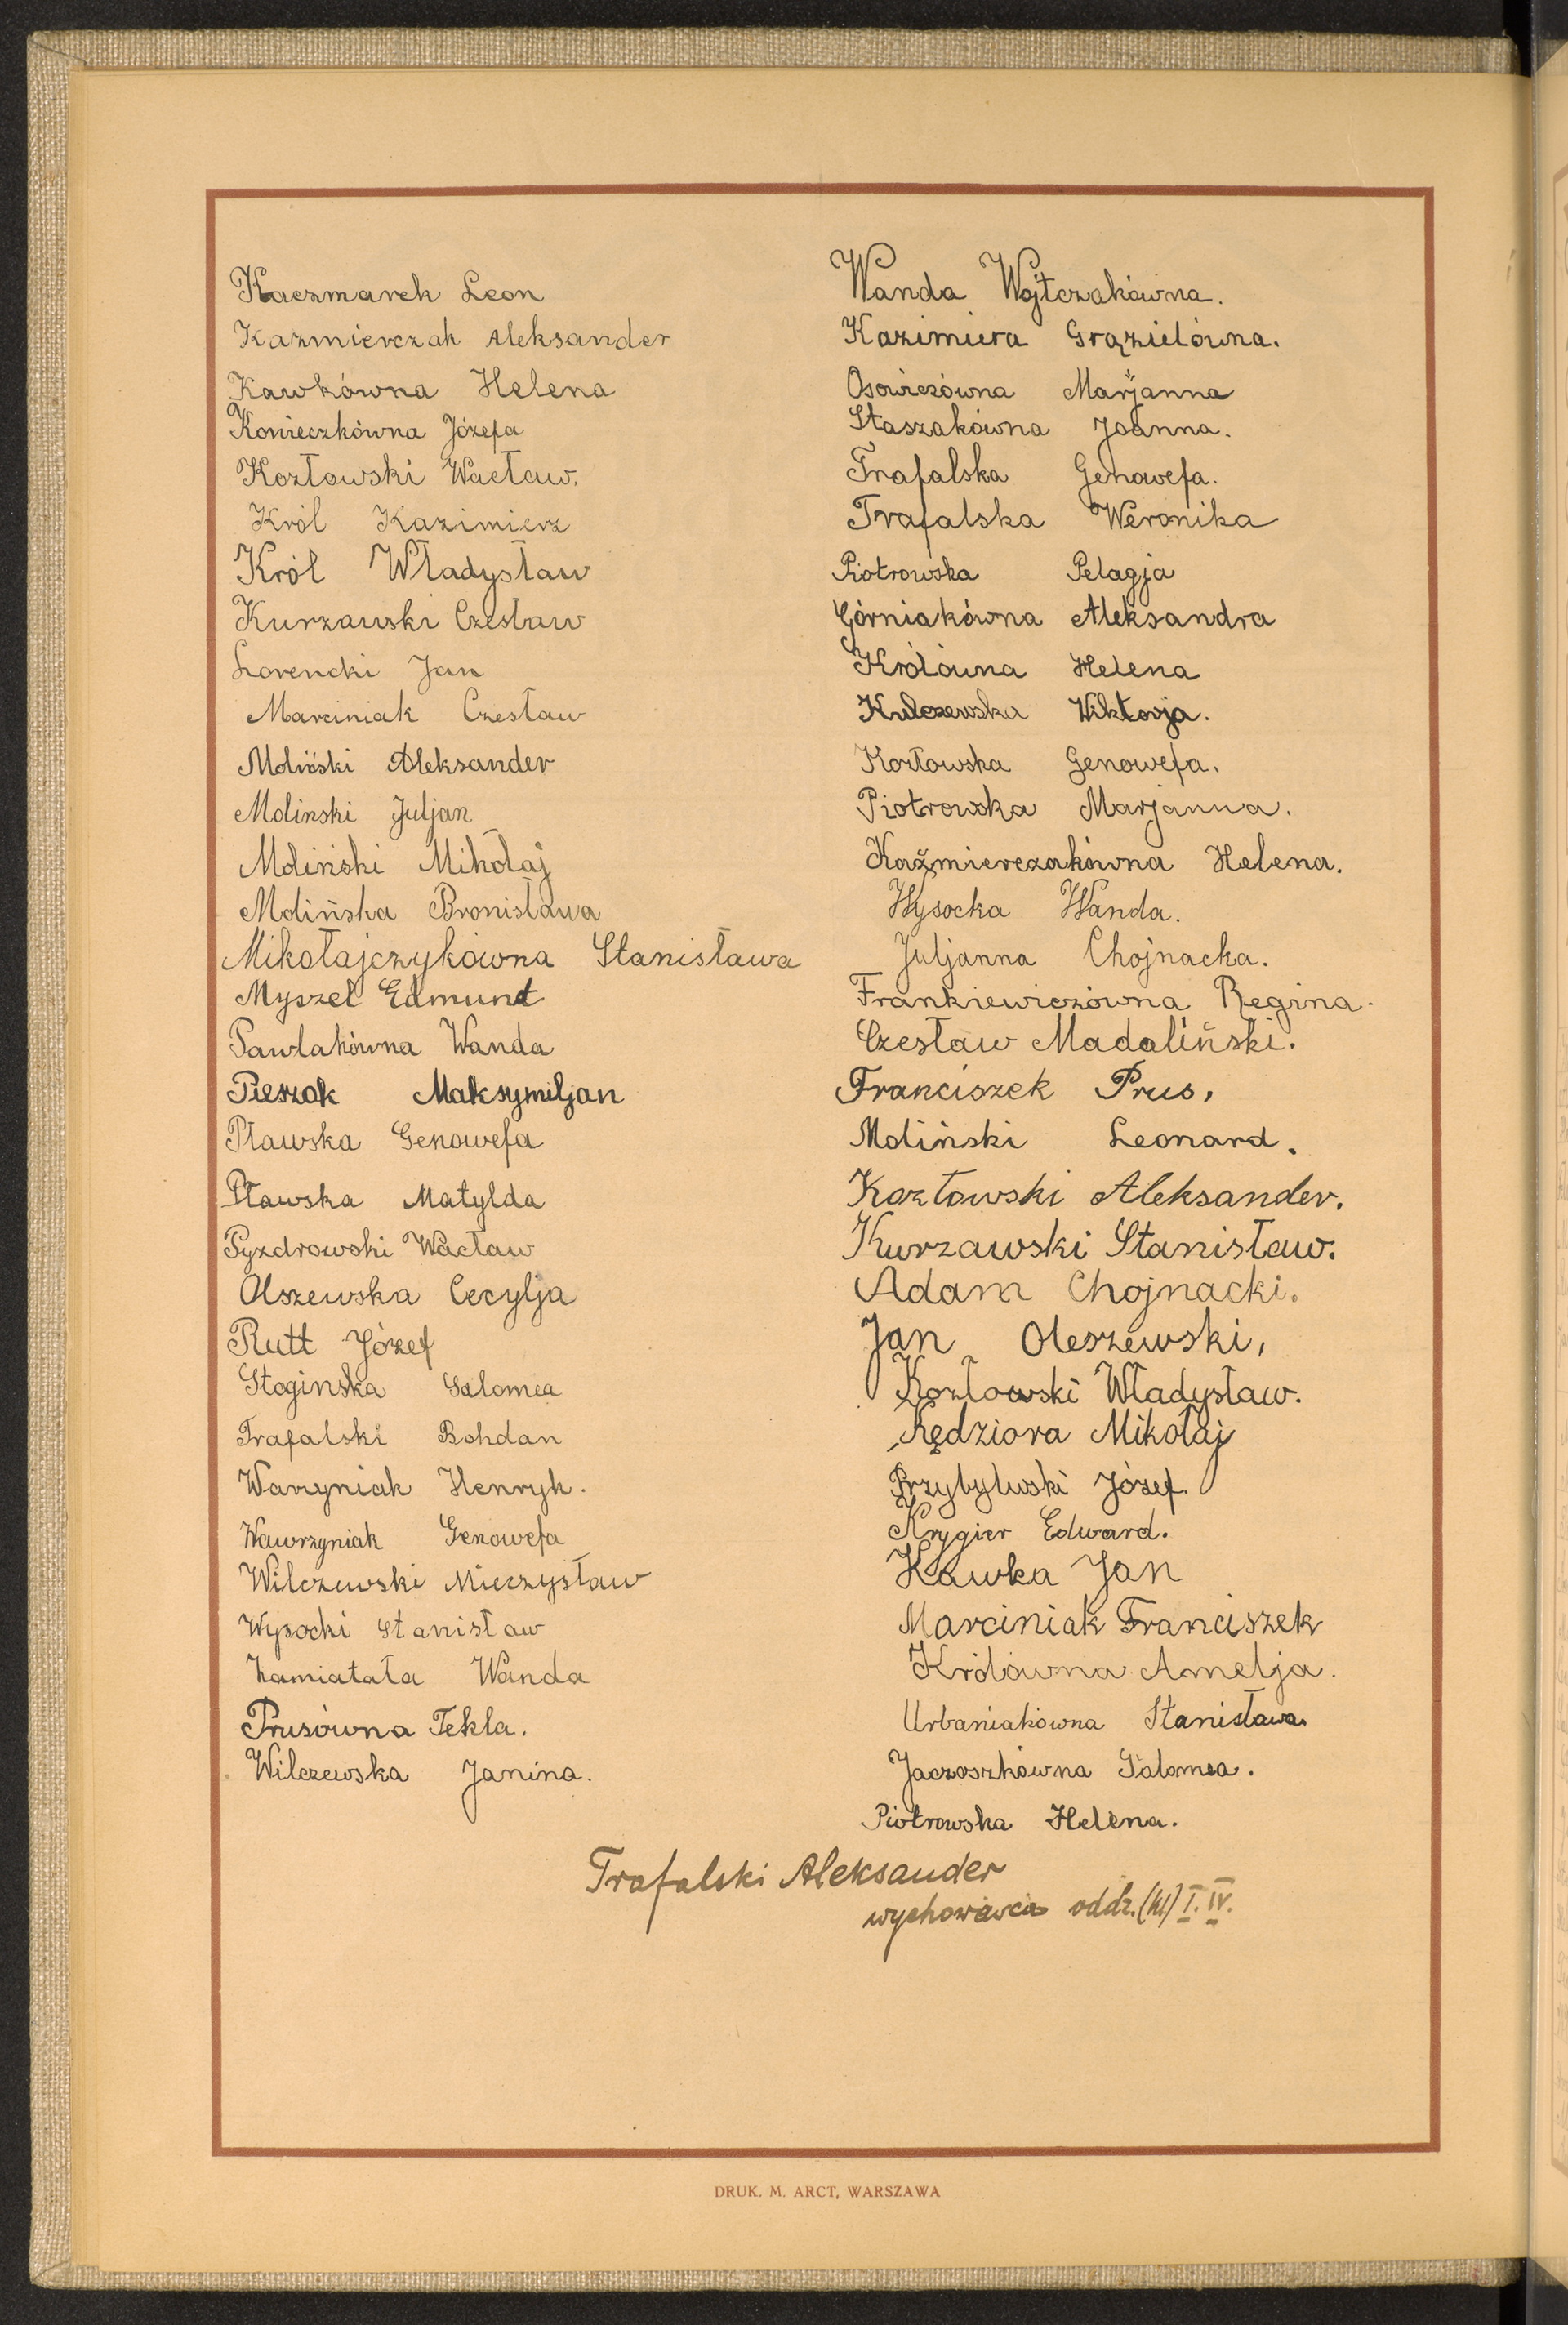 Kaczmarek Leon
Kazmierczak Aleksander
Kawkówna Helena
Konieczkówna Józefa
Kozłowski Wacław.
Król Kazimierz
Król Władysław
Kurzawski Czesław
Lorencki Jan
Marciniak Czesław
Moliński Aleksander
Molinski Juljan
Moliński Mikołaj
Molińska Bronisława
Mikołajczykówna Stanisława
Myszel Edmund
Pawlakówna Wanda
Pieszak Maksymiljan
Pławska Genowefa
Pławska Matylda
Pyzdrowski Wacław
Olszewska Cecylja
Rutt Józef
Stoginska Salomea
Trafalski Bohdan
Warzyniak Henryk.
Wawrzyniak Genowefa
Wilczewski Mieczysław
Wysocki Stanisław
Zamiatała Wanda
Prusówna Tekla.
Wilczewska Janina.
Wanda Wojtczakówna.
Kazimiera Grązielówna.
Osowiczówna Marjanna
Staszakówna Joanna.
Trafalska Genowefa.
Trafalska Weronika
Piotrowska Pelagja
Górniakówna Aleksandra
Królówna Helena
Kulczewska Wiktorja.
Kozłowska Genowefa.
Piotrowska Marjanna.
Kaźmierczakówna Helena.
Wysocka Wanda.
Juljanna Chojnacka.
Frankiewiczówna Regina.
Czesław Madaliński.
Franciszek Prus,
Moliński Leonard.
Kozłowski Aleksander.
Kurzawski Stanisław.
Adam Chojnacki.
Jan Oleszewski,
Kozłowski Władysław.
Kędziora Mikołaj
Przybylwski Józef.
Krygier Edward.
Kawka Jan
Marciniak Franciszek
Królówna Amelja.
Urbaniakówna Stanisława.
Jaczoszkówna Salomea.
Piotrowska Helena.
Trafalski Aleksander
wychowawca oddz.(kl) I. IV.
DRUK. M. ARCT, WARSZAWA